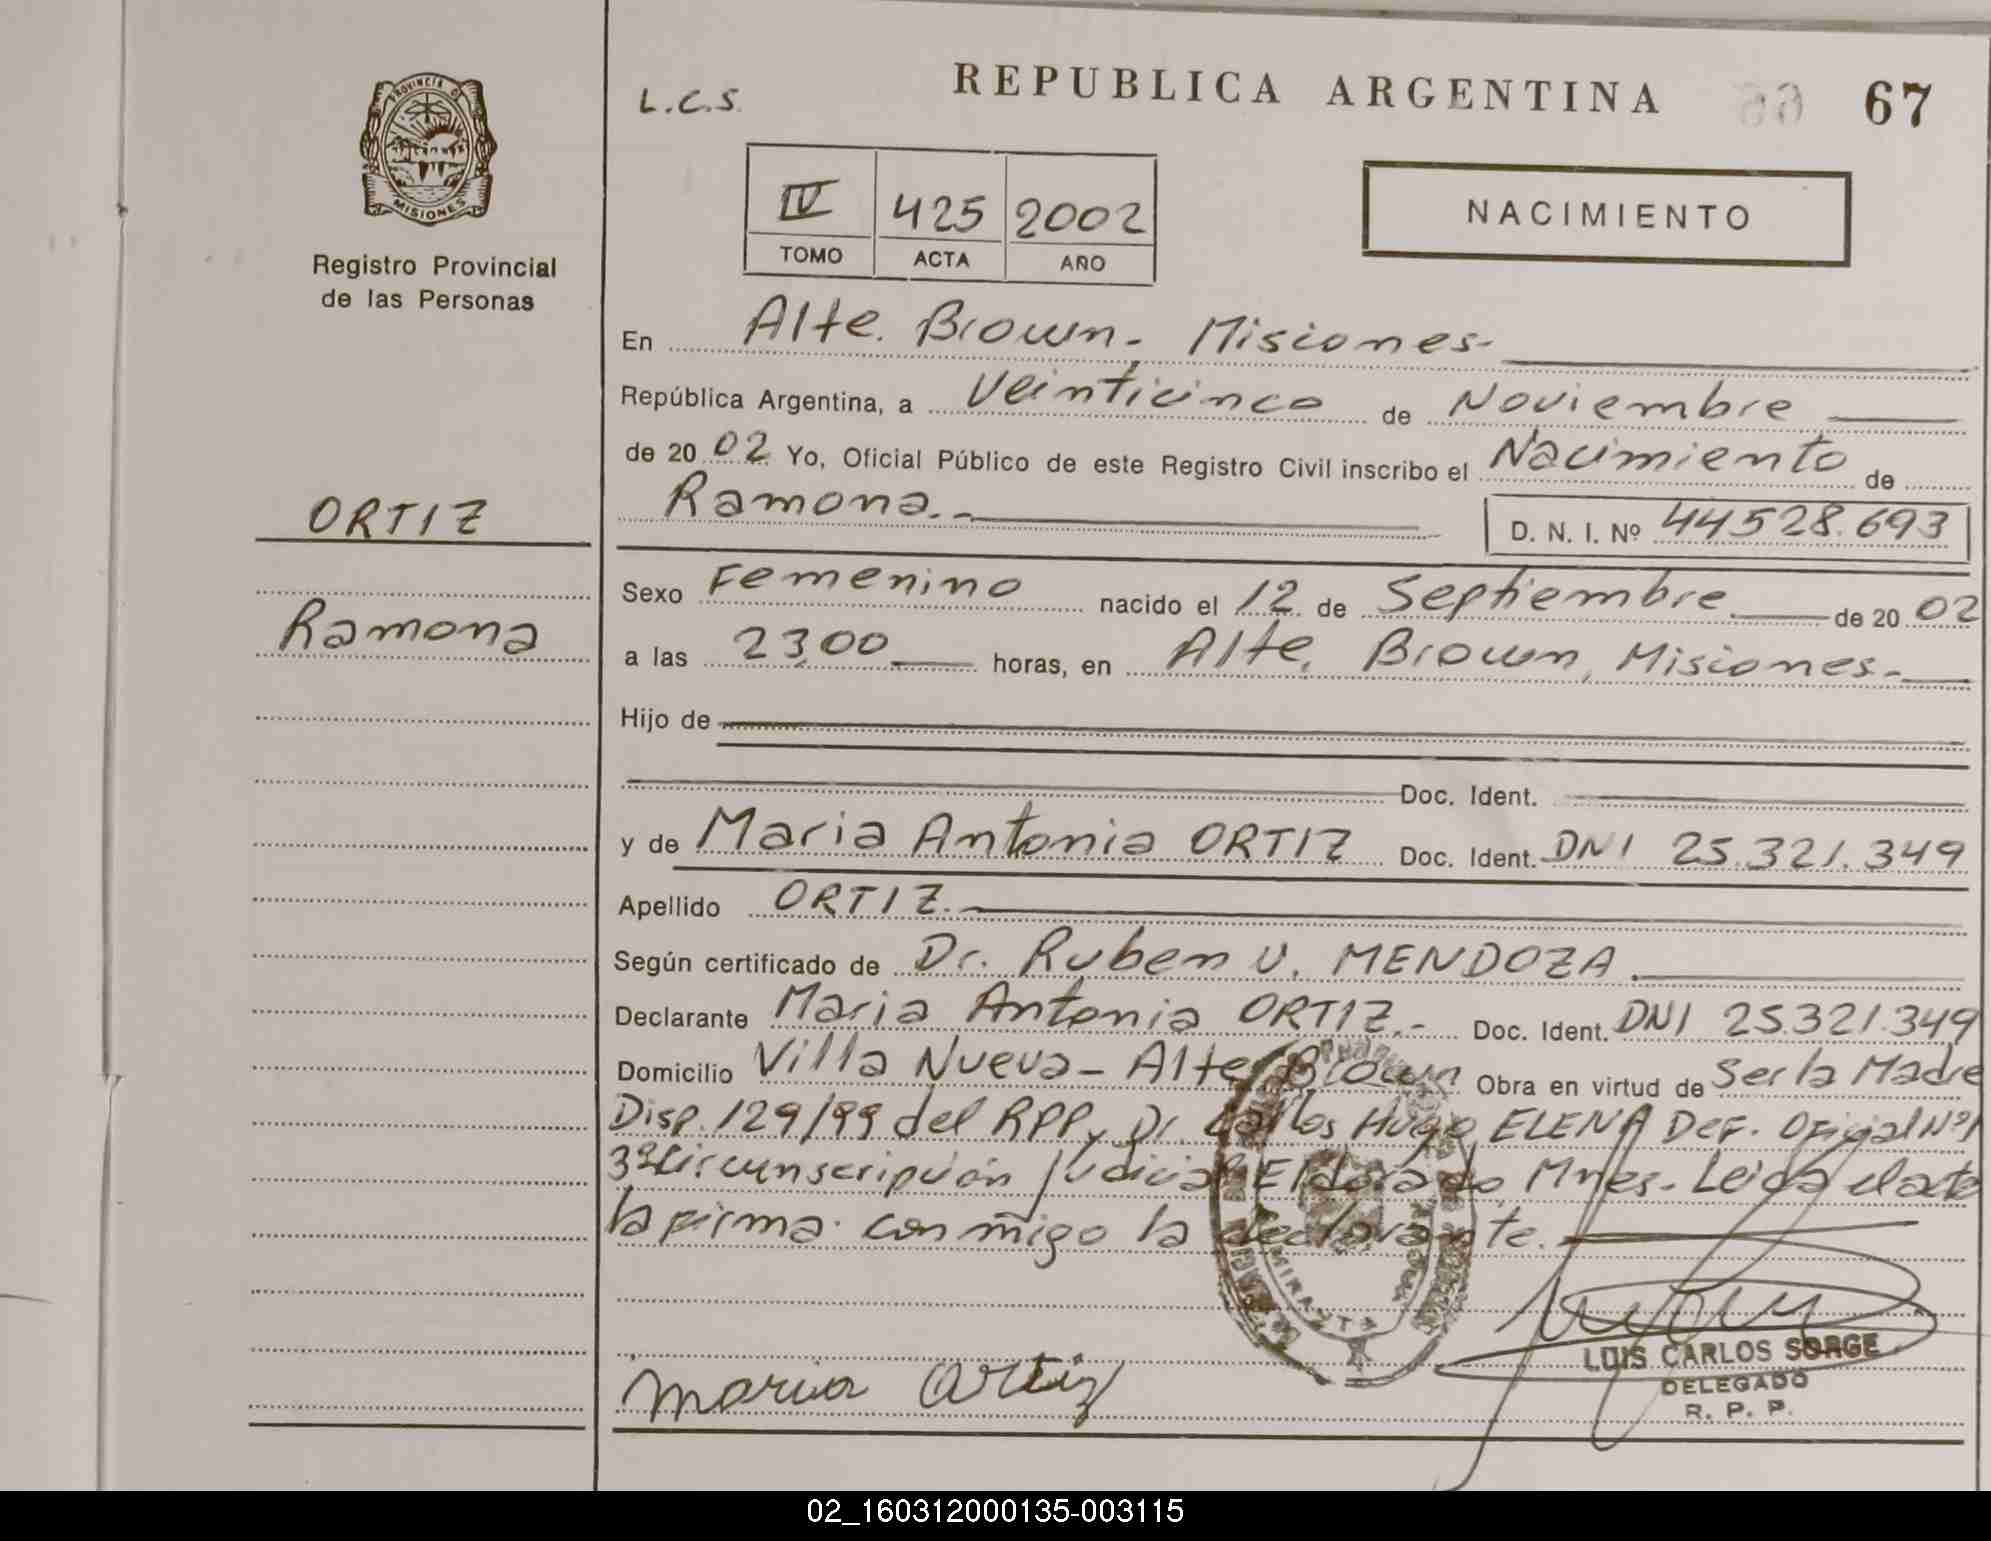 PROVINCIA DE
MISIONES
Registro Provincial
de las Personas
ORTIZ
Ramona
L.C.S.
REPUBLICA ARGENTINA 66 67
IV 425 2002
TOMO ACTA AÑO
NACIMIENTO
En Alte. Brown - Misiones-
República Argentina, a Veinticinco de Noviembre
de 2002 Yo, Oficial Público de este Registro Civil inscribo el Nacimiento de
Ramona.- D. N. I. Nº 44528.693
Sexo Femenino nacido el 12 de Septiembre de 2002
a las 23,00 horas, en Alte. Brown, Misiones-
Hijo de
Doc. Ident.
y de Maria Antonia ORTIZ Doc. Ident. DNI 25.321.349
Apellido ORTIZ.-
Según certificado de Dr. Ruben U. MENDOZA.
Declarante Maria Antonia ORTIZ.- Doc. Ident. DNI 25.321.349
Domicilio Villa Nueva - Alte. Brown Obra en virtud de Ser la Madre
Disp. 129/99 del RPP, Dr. Carlos Hugo ELENA Def. Oficial Nº1
3º Circunscripción Judicial Eldorado Mnes. Leida el acta
la firma conmigo la declarante.
Maria Ortiz
LUIS CARLOS SORGE
DELEGADO
R. P. P.
02_160312000135-003115